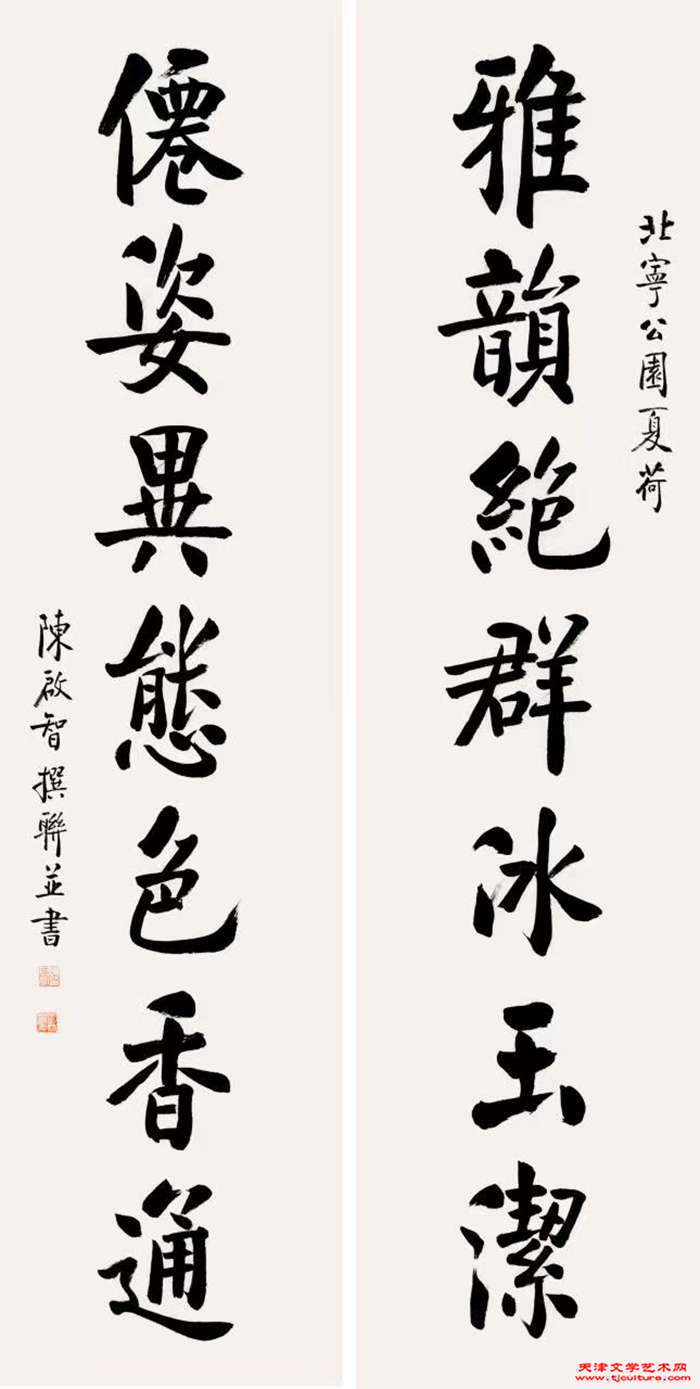 北寧公園夏荷
雅韻絕群冰玉潔
僊姿異態色香通
陳啟智撰聯並書
天津文学艺术网
www.tjculture.com